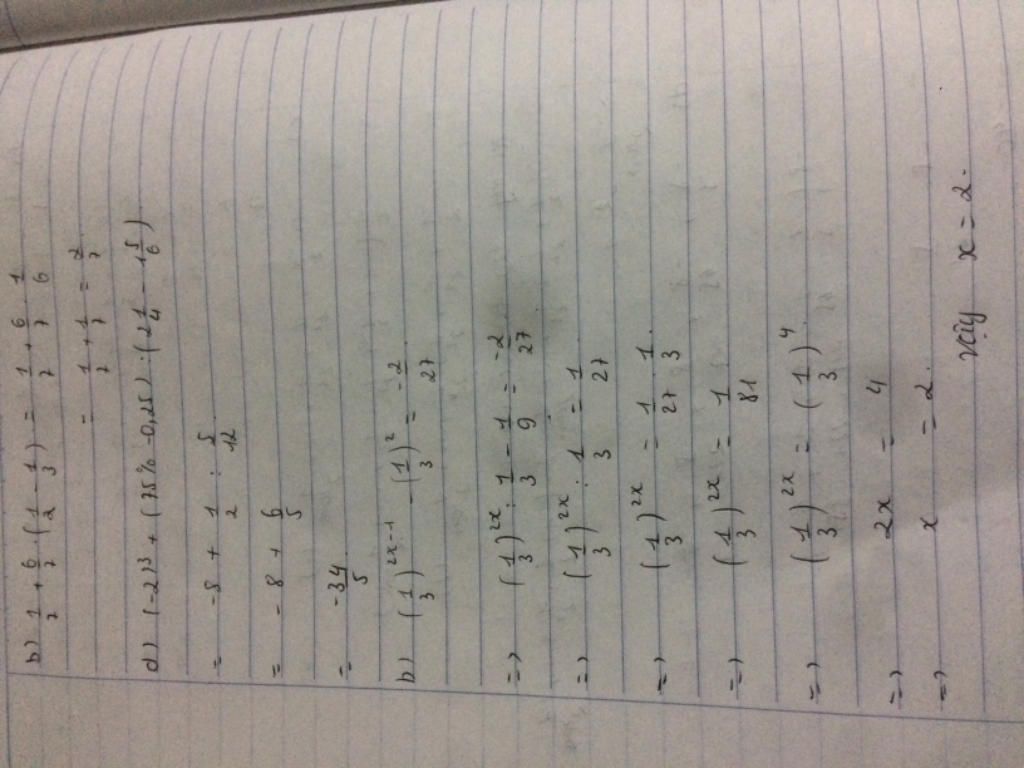 b) 1/7 + 6/7 · (1/2 - 1/3) = 1/7 + 6/7 · 1/6
= 1/7 + 1/7 = 2/7
d) (-2)³ + (75% - 0,25) : (2 1/4 - 1 5/6)
= -8 + 1/2 : 5/12
= -8 + 6/5
= -34/5
b) (1/3)^(2x-1) - (1/3)² = -2/27
=> (1/3)^(2x) : 1/3 - 1/9 = -2/27
=> (1/3)^(2x) : 1/3 = 1/27
=> (1/3)^(2x) = 1/27 · 1/3.
=> (1/3)^(2x) = 1/81
=> (1/3)^(2x) = (1/3)⁴
=> 2x = 4
=> x = 2.
Vậy x = 2.